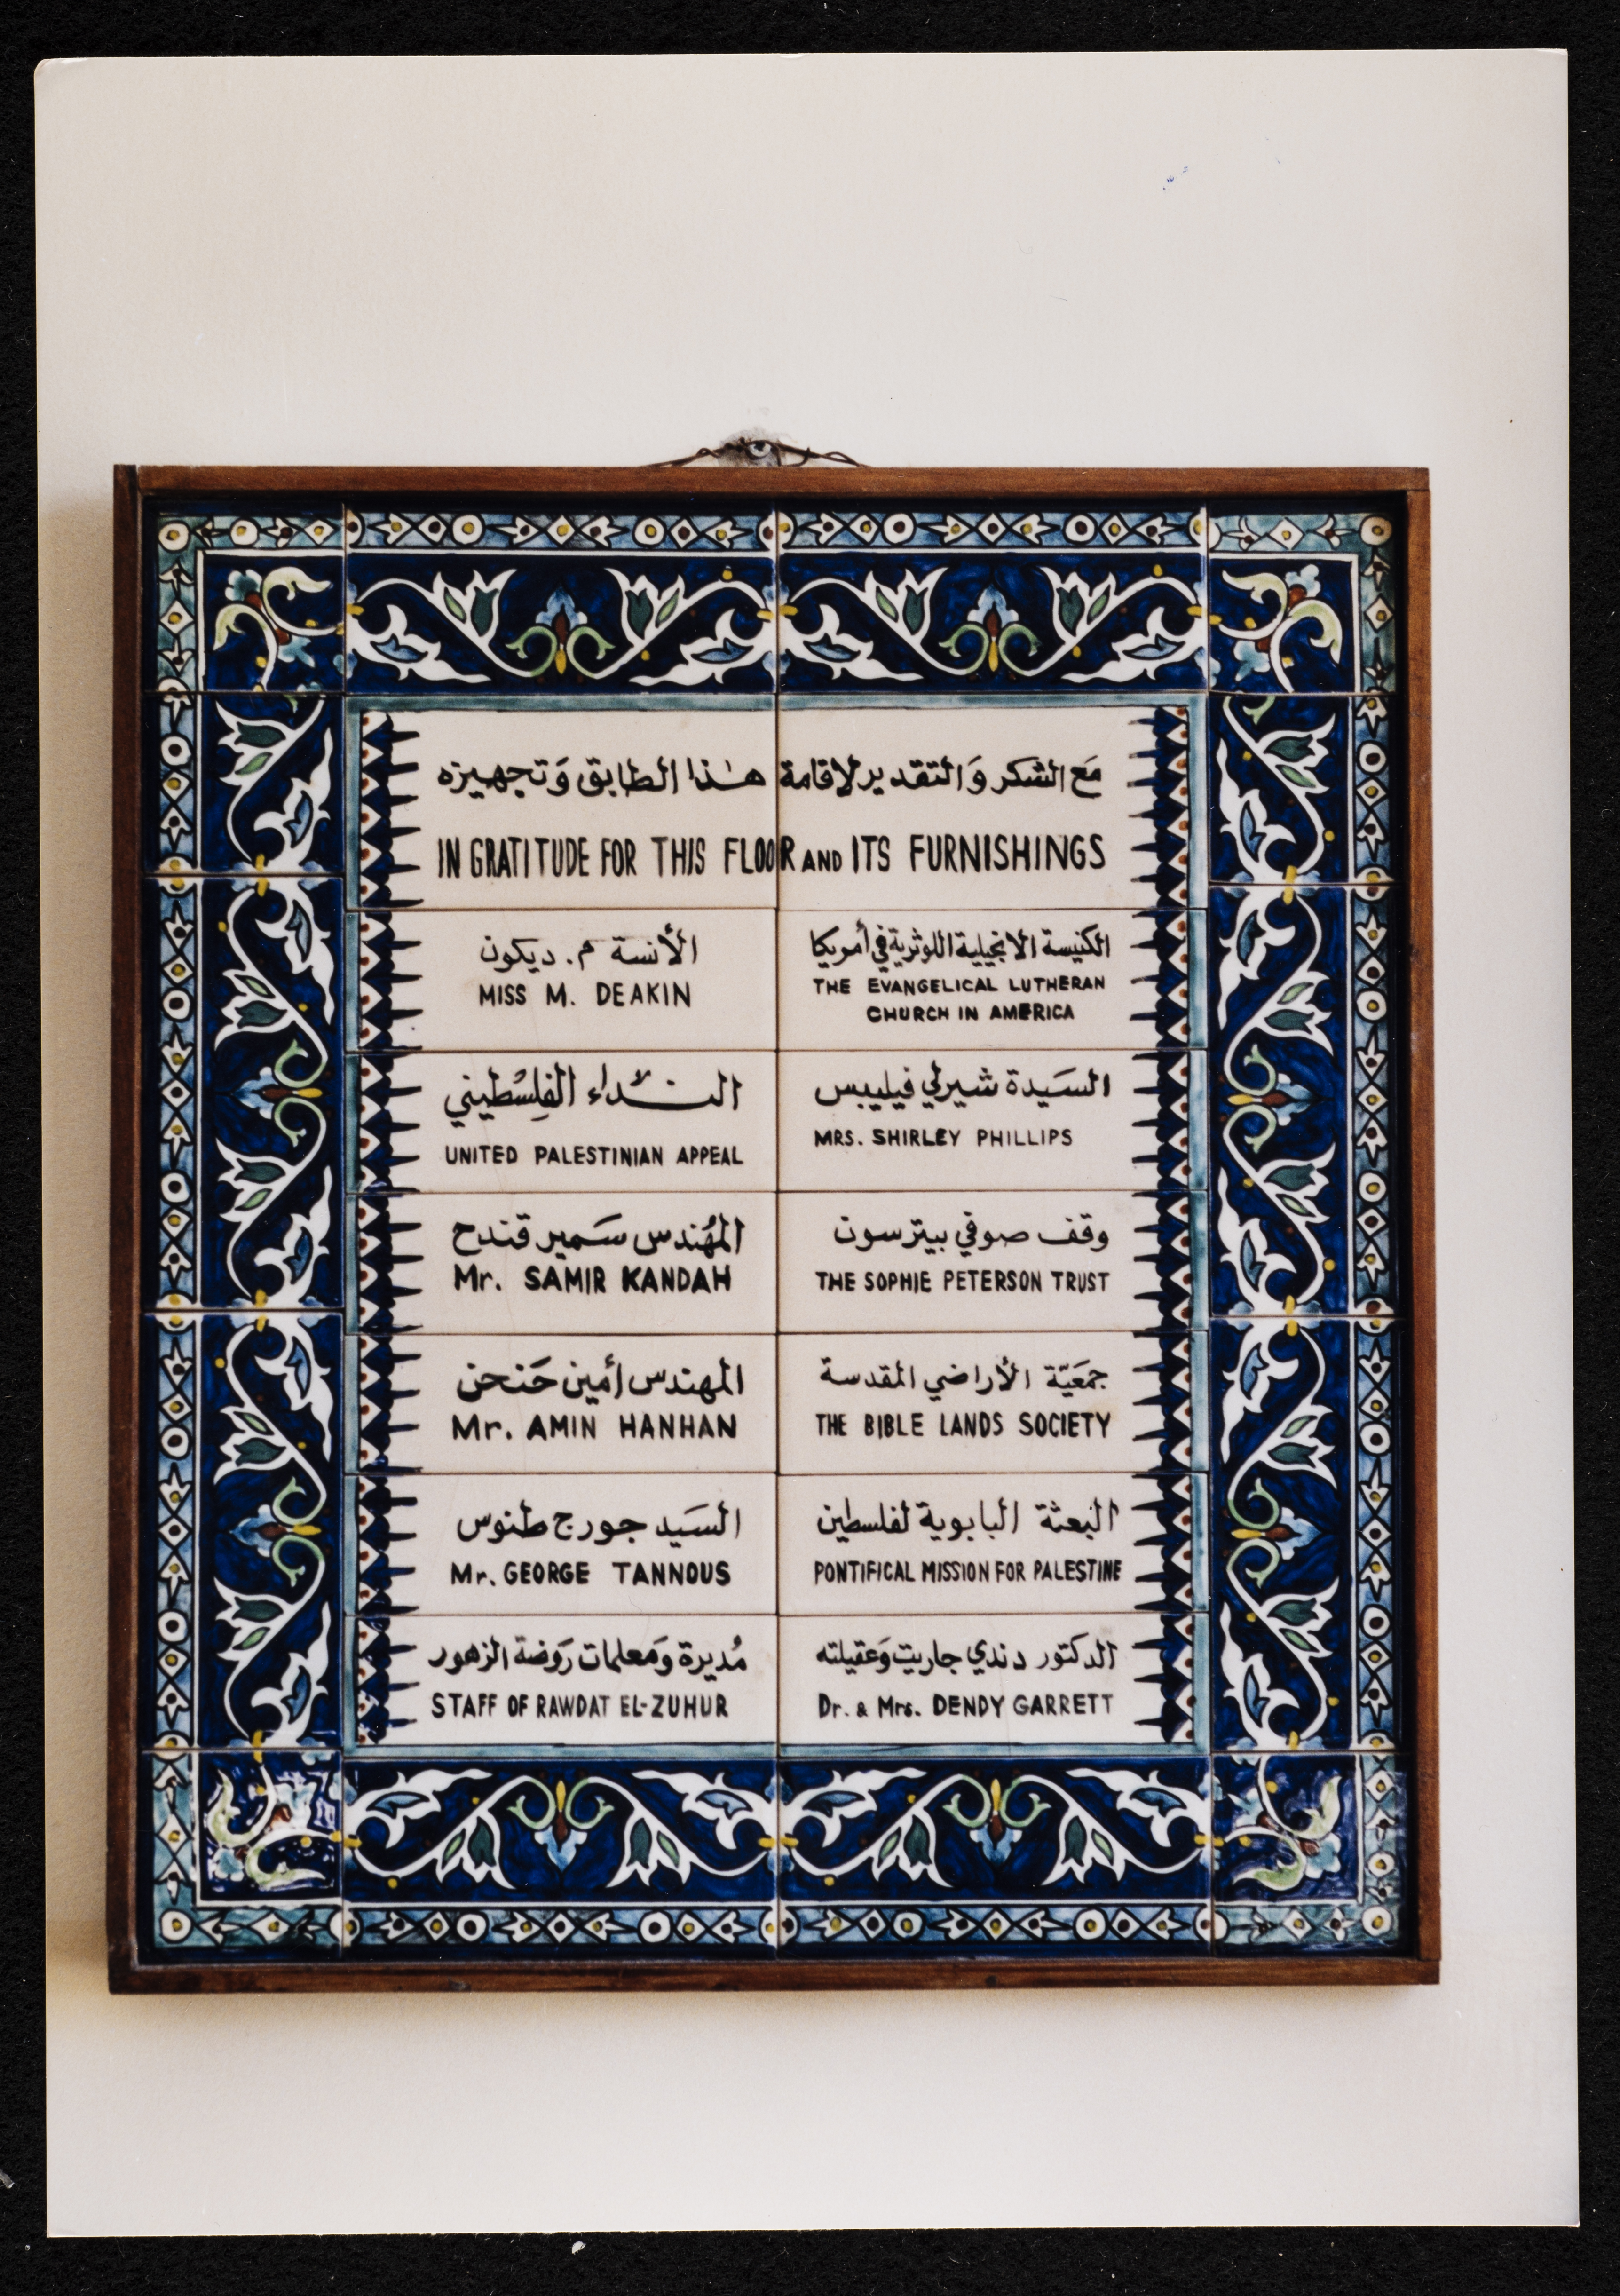 مَع الشكر وَالتقدير لاقامة هٰذا الطابق وَتجهيزه
IN GRATITUDE FOR THIS FLOOR AND ITS FURNISHINGS
الكنيسة الانجيلية اللوثرية في أمريكا
THE EVANGELICAL LUTHERAN
CHURCH IN AMERICA
الأنسة م. ديكون
MISS M. DEAKIN
السَيدة شيرلي فيليبس
MRS. SHIRLEY PHILLIPS
النداء الفِلِسْطيني
UNITED PALESTINIAN APPEAL
وقف صوفي بيترسون
THE SOPHIE PETERSON TRUST
المُهندس سَمير قندح
Mr. SAMIR KANDAH
جمعَيّة الأراضي المقدسة
THE BIBLE LANDS SOCIETY
المهندس أمين حَنحن
Mr. AMIN HANHAN
البعثة البابوية لفلسطين
PONTIFICAL MISSION FOR PALESTINE
السَيد جورج طنوس
Mr. GEORGE TANNOUS
الدكتور دندي جاريت وَعقيلته
Dr. & Mrs. DENDY GARRETT
مُديرة وَمعلمات رَوضة الزهور
STAFF OF RAWDAT EL-ZUHUR